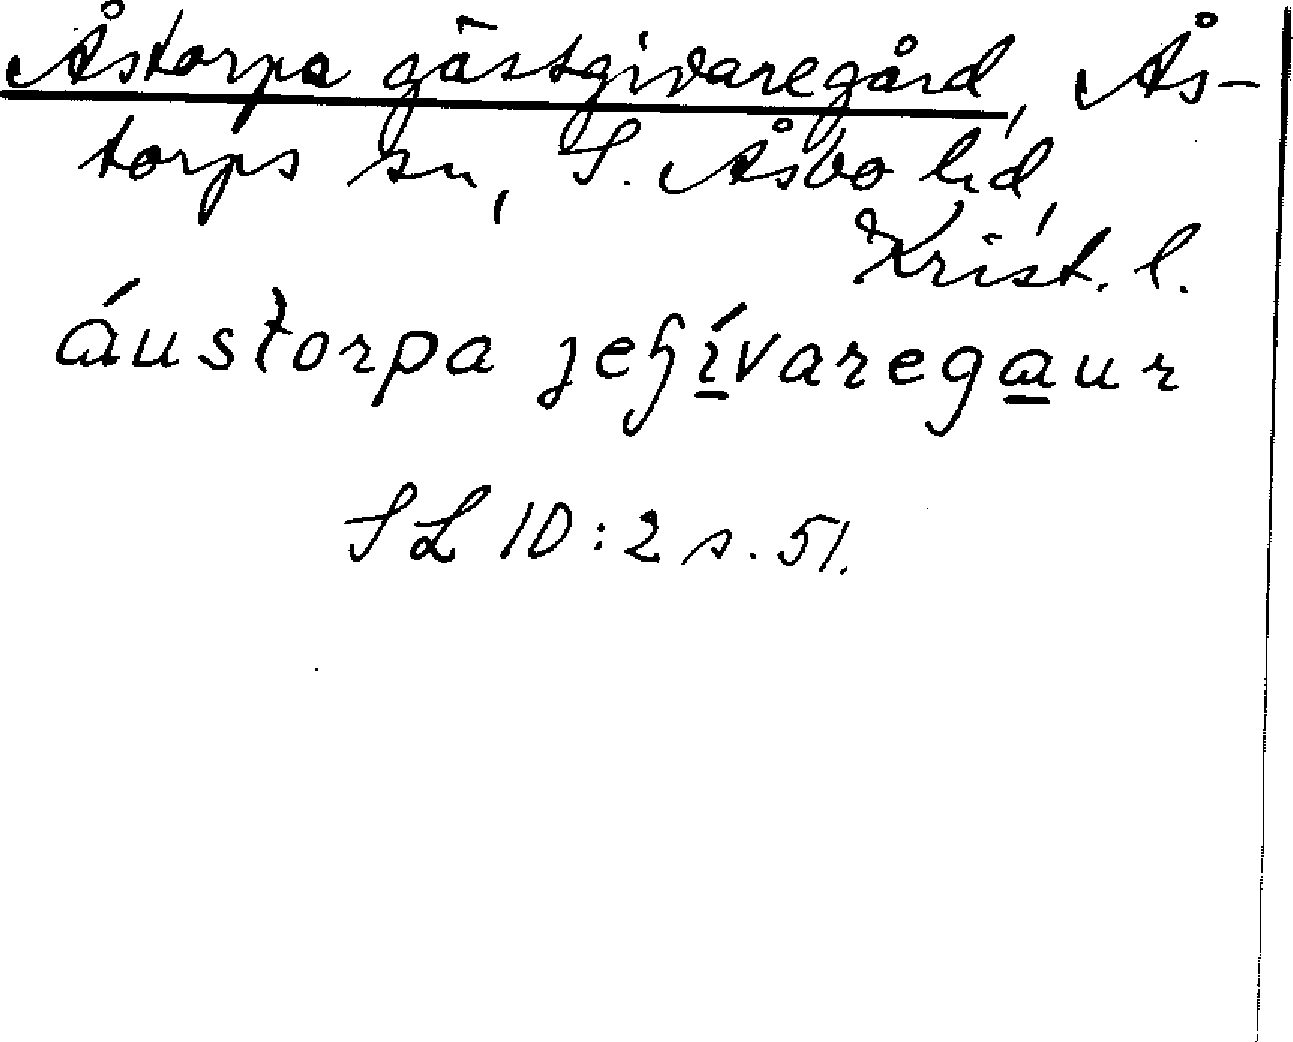 Åstorpa gästgivaregård, Ås-
torps sn, S. Åsbo hd,
Krist. l.
áustorpa jeɧívaregaur
SL 10:2 s. 51.